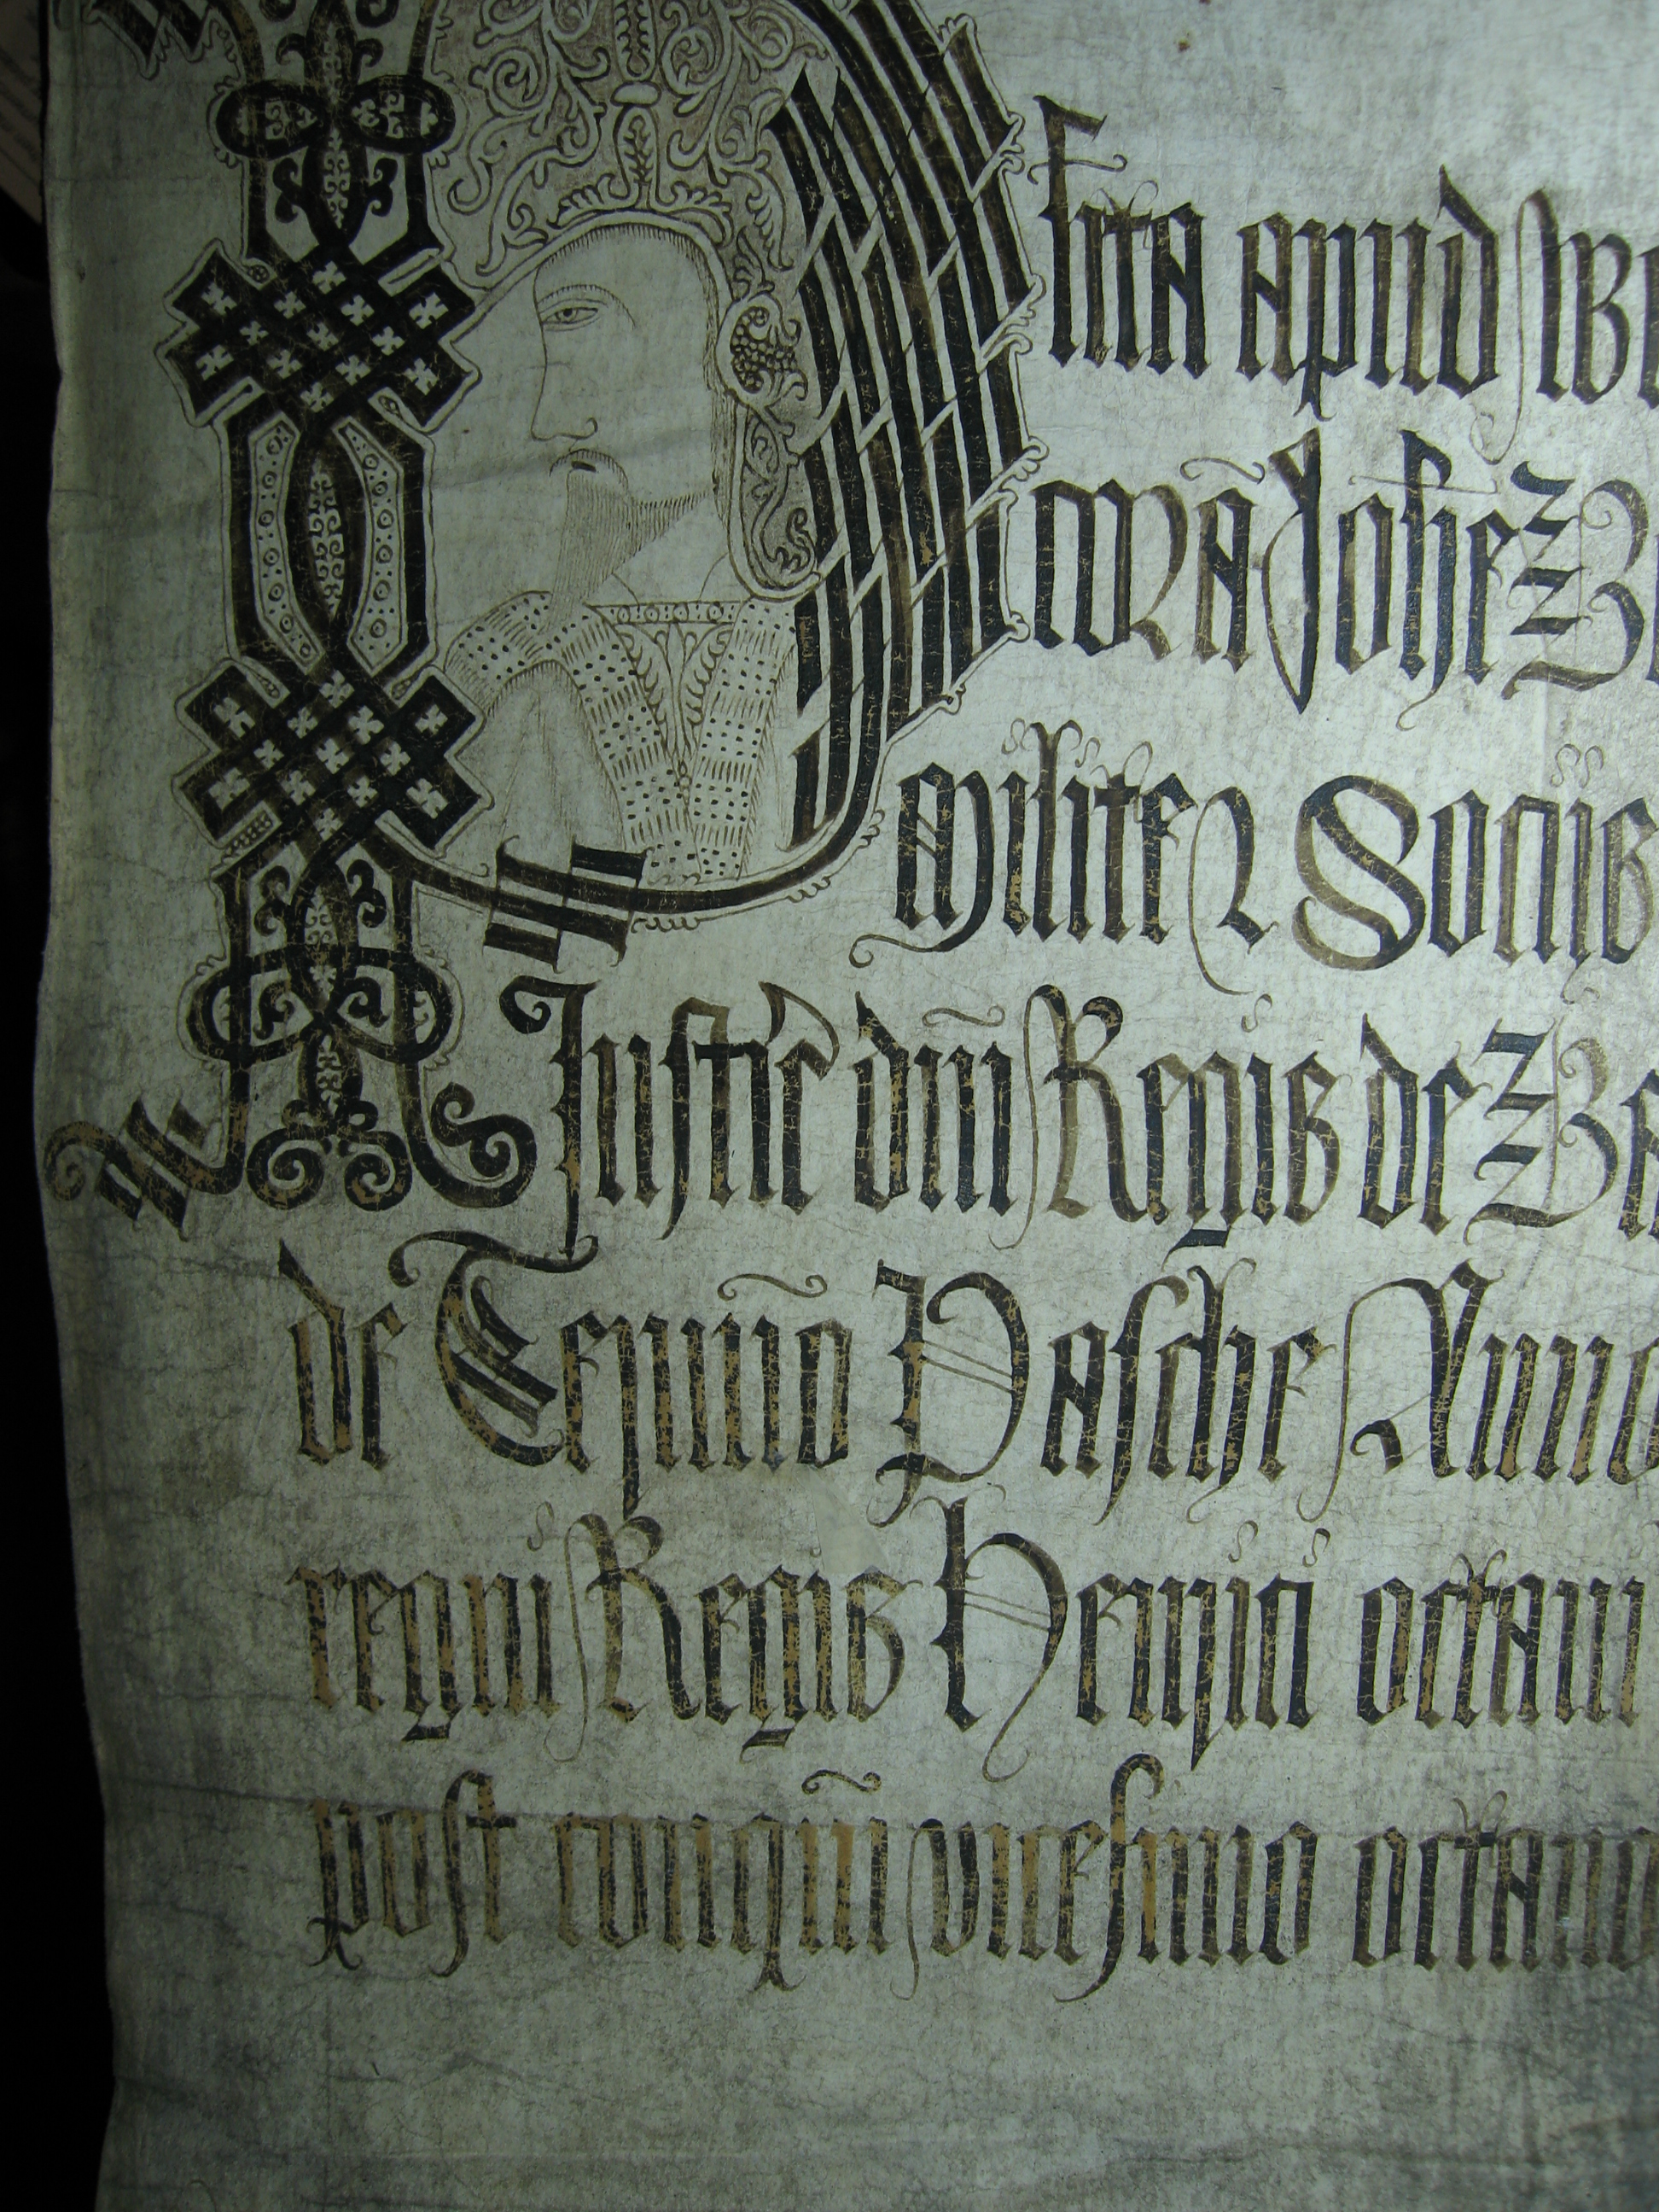 Plita apud We
corā Johe Ba
Milite 2 Sociis
Justic dni Regis de Ba
de Termino Pasche Anno
regni Regis Henrici octaui
post conqum vicesimo octauo